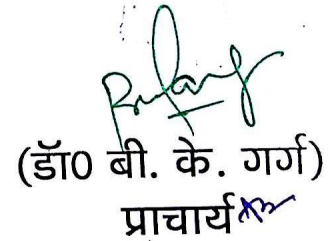 (डॉ0 बी. के. गर्ग)
प्राचार्य